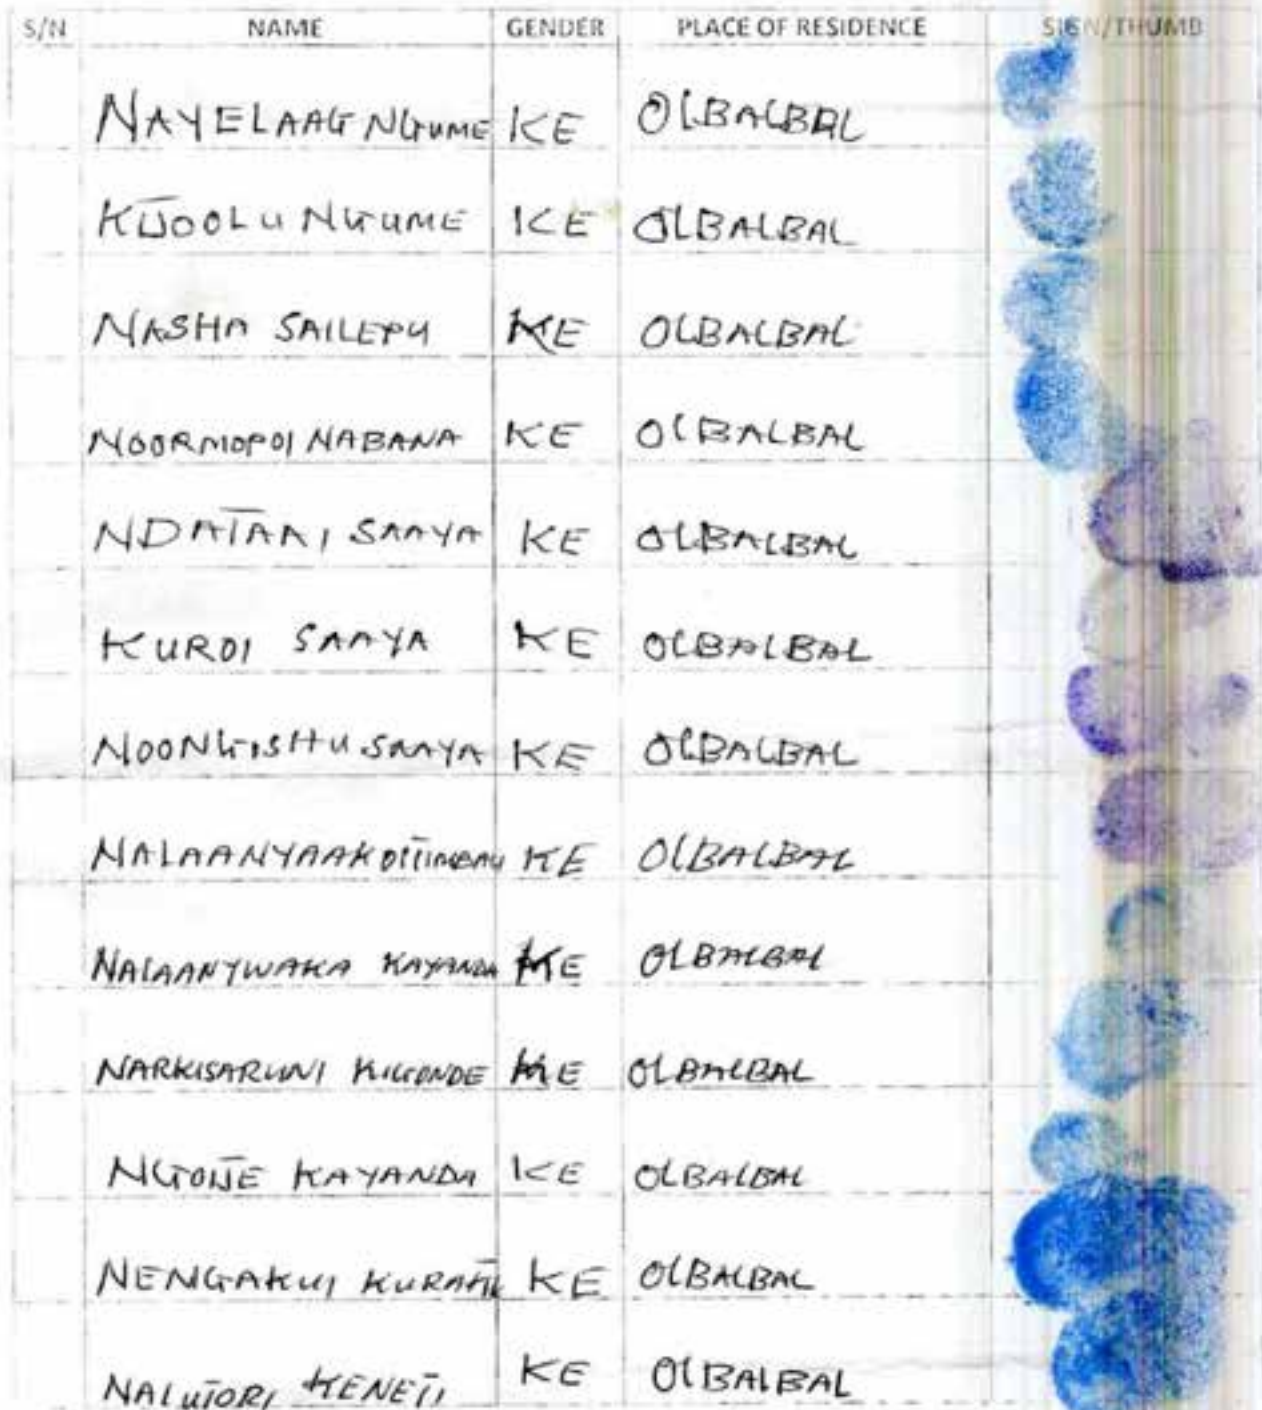 S/N NAME GENDER PLACE OF RESIDENCE SIGN/THUMB
NAYELAAG NGUME KE OLBALBAL
KIJOOLU NGUME KE OLBALBAL
NASHA SAILEPU KE OLBALBAL
NOORMOPOI NABANA KE OLBALBAL
NDATAAI SAAYA KE OLBALBAL
KUROI SAAYA KE OLBALBAL
NOONGISHU SAAYA KE OLBALBAL
NALAANYAAK KE OLBALBAL
NALAANYWAKA KAYANDA KE OLBALBAL
NARKISARUNI KIGONDE KE OLBALBAL
NGOIJE KAYANDA KE OLBALBAL
NENGAKUI KE OLBALBAL
KENETI KE OLBALBAL